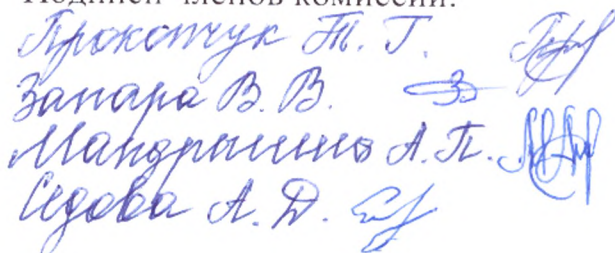 Подписи членов комиссии:
Прокопчук Т. Г.
Запара В. В.
А. П.
Седова А. Д.